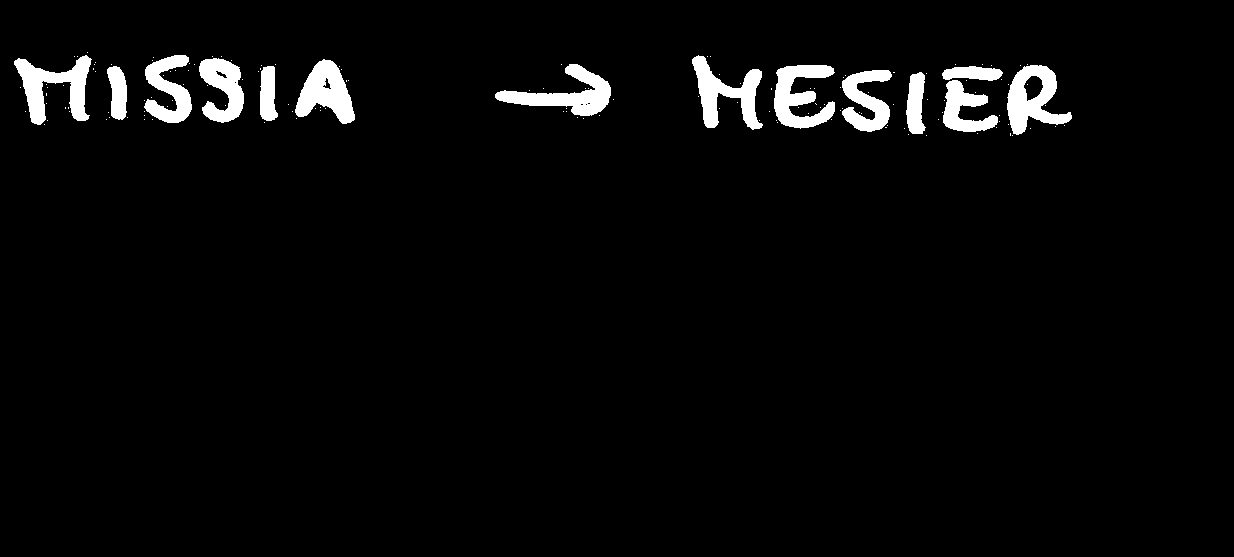 MISSIA → MESIER